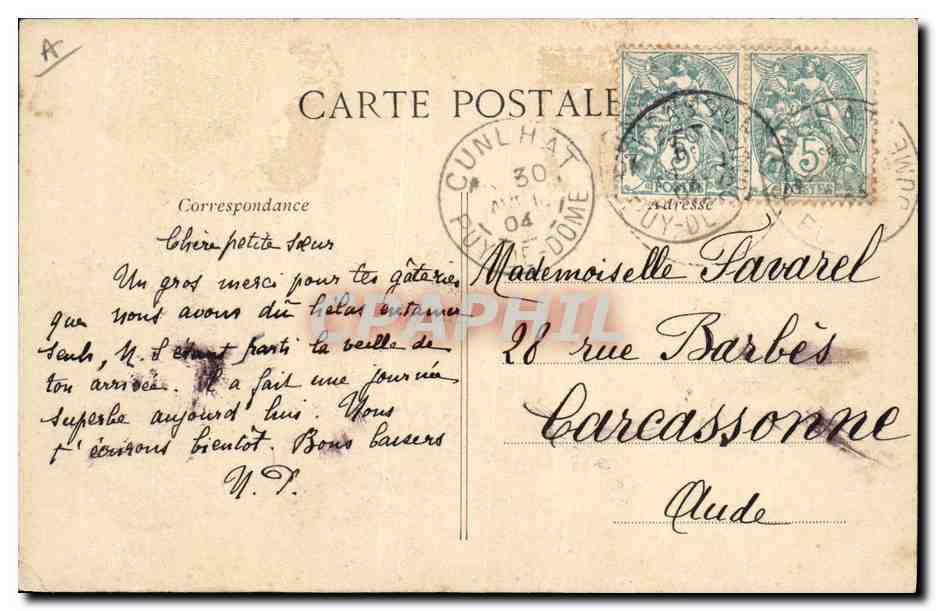 A
CARTE POSTALE
CUNLHAT
30
04
PUY-DE-DOME
5c
POSTES
5c
POSTES
PUY-DU
Correspondance
Adresse
Chère petite sœur
Un gros merci pour tes gâteries
que nous avons dû hélas entamer
seuls, N. S étant parti la veille de
ton arrivée. Il a fait une journée
superbe aujourd'hui. Nous
t'écrirons bientôt. Bons baisers
Mademoiselle Favarel
28 rue Barbès
Carcassonne
Aude
CPAPHIL